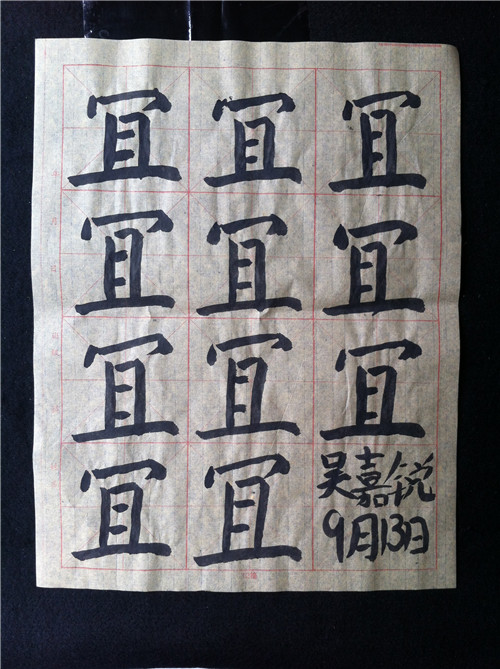 冝 冝 冝
冝 冝 冝
冝 冝 冝
冝 冝
吴嘉锐
9月13日